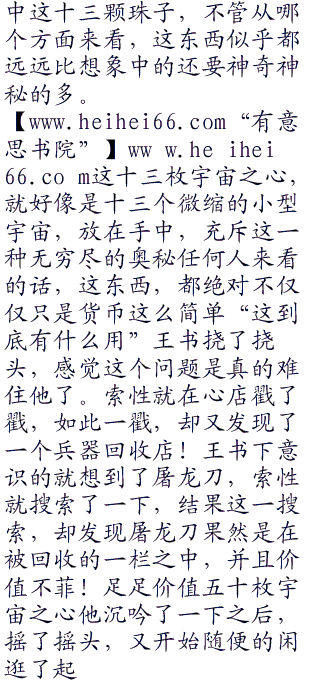 中这十三颗珠子，不管从哪
个方面来看，这东西似乎都
远远比想象中的还要神奇神
秘的多。
【www.heihei66.com“有意
思书院”】ww w.he ihei
66.co m这十三枚宇宙之心，
就好像是十三个微缩的小型
宇宙，放在手中，充斥这一
种无穷尽的奥秘任何人来看
的话，这东西，都绝对不仅
仅只是货币这么简单“这到
底有什么用”王书挠了挠
头，感觉这个问题是真的难
住他了。索性就在心店戳了
戳，如此一戳，却又发现了
一个兵器回收店！王书下意
识的就想到了屠龙刀，索性
就搜索了一下，结果这一搜
索，却发现屠龙刀果然是在
被回收的一栏之中，并且价
值不菲！足足价值五十枚宇
宙之心他沉吟了一下之后，
摇了摇头，又开始随便的闲
逛了起